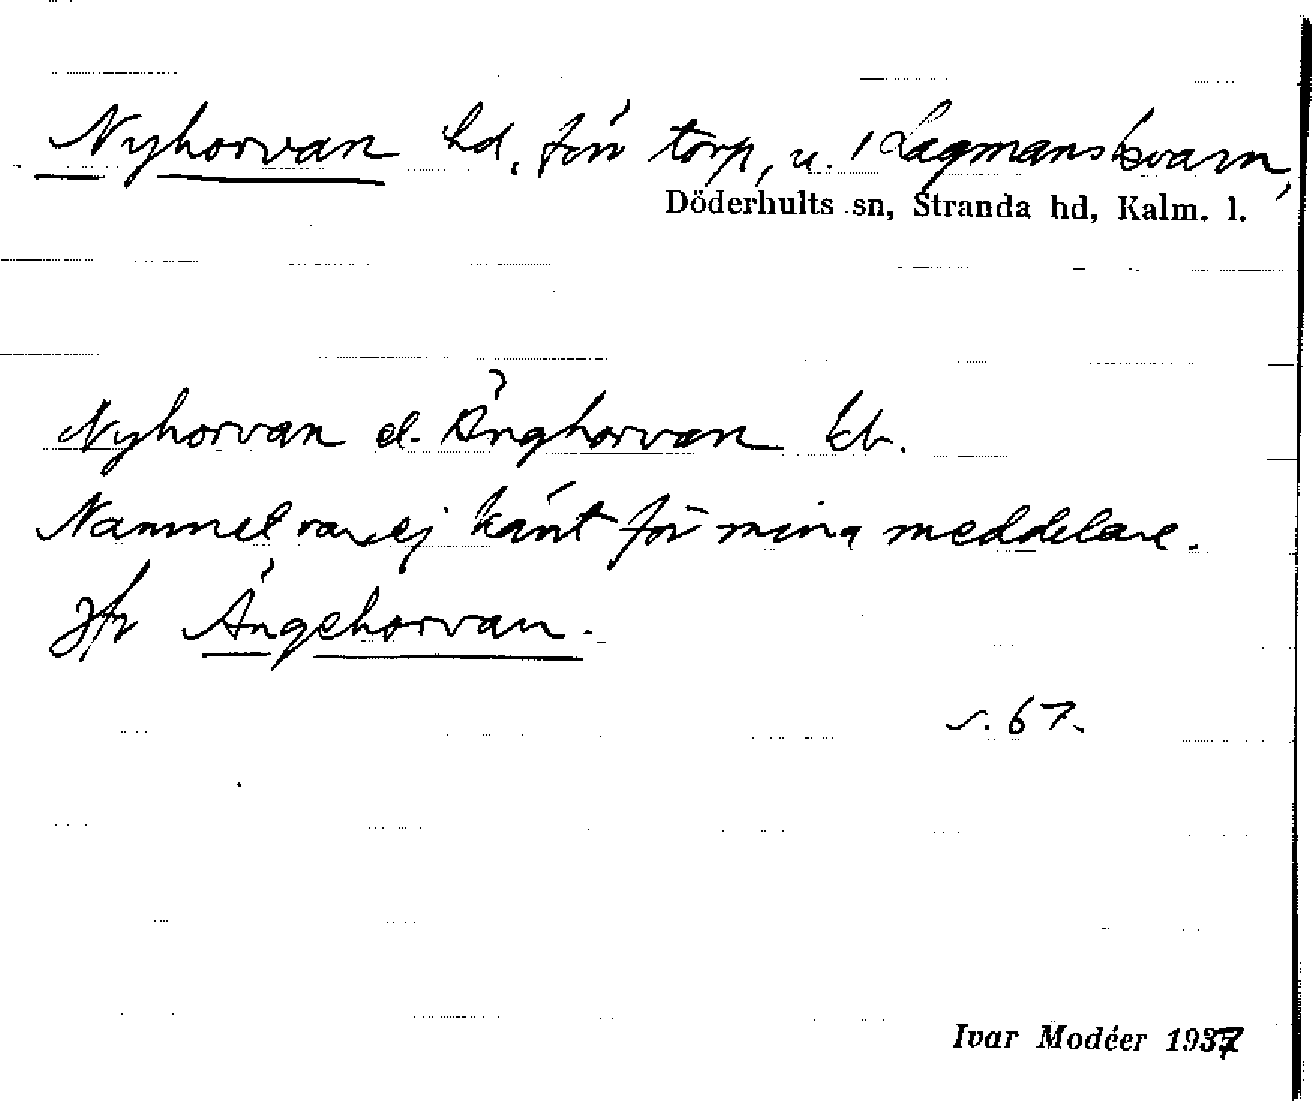 Nyhorvan hd, förr torp, u. 1 Lagmanskvarn,
Döderhults sn, Stranda hd, Kalm. l.
Nyhorvan el. Änghorvan kb.
Namnet var ej känt för mina meddelare.
Jfr Ängshorvan.
s. 67.
Ivar Modéer 1937